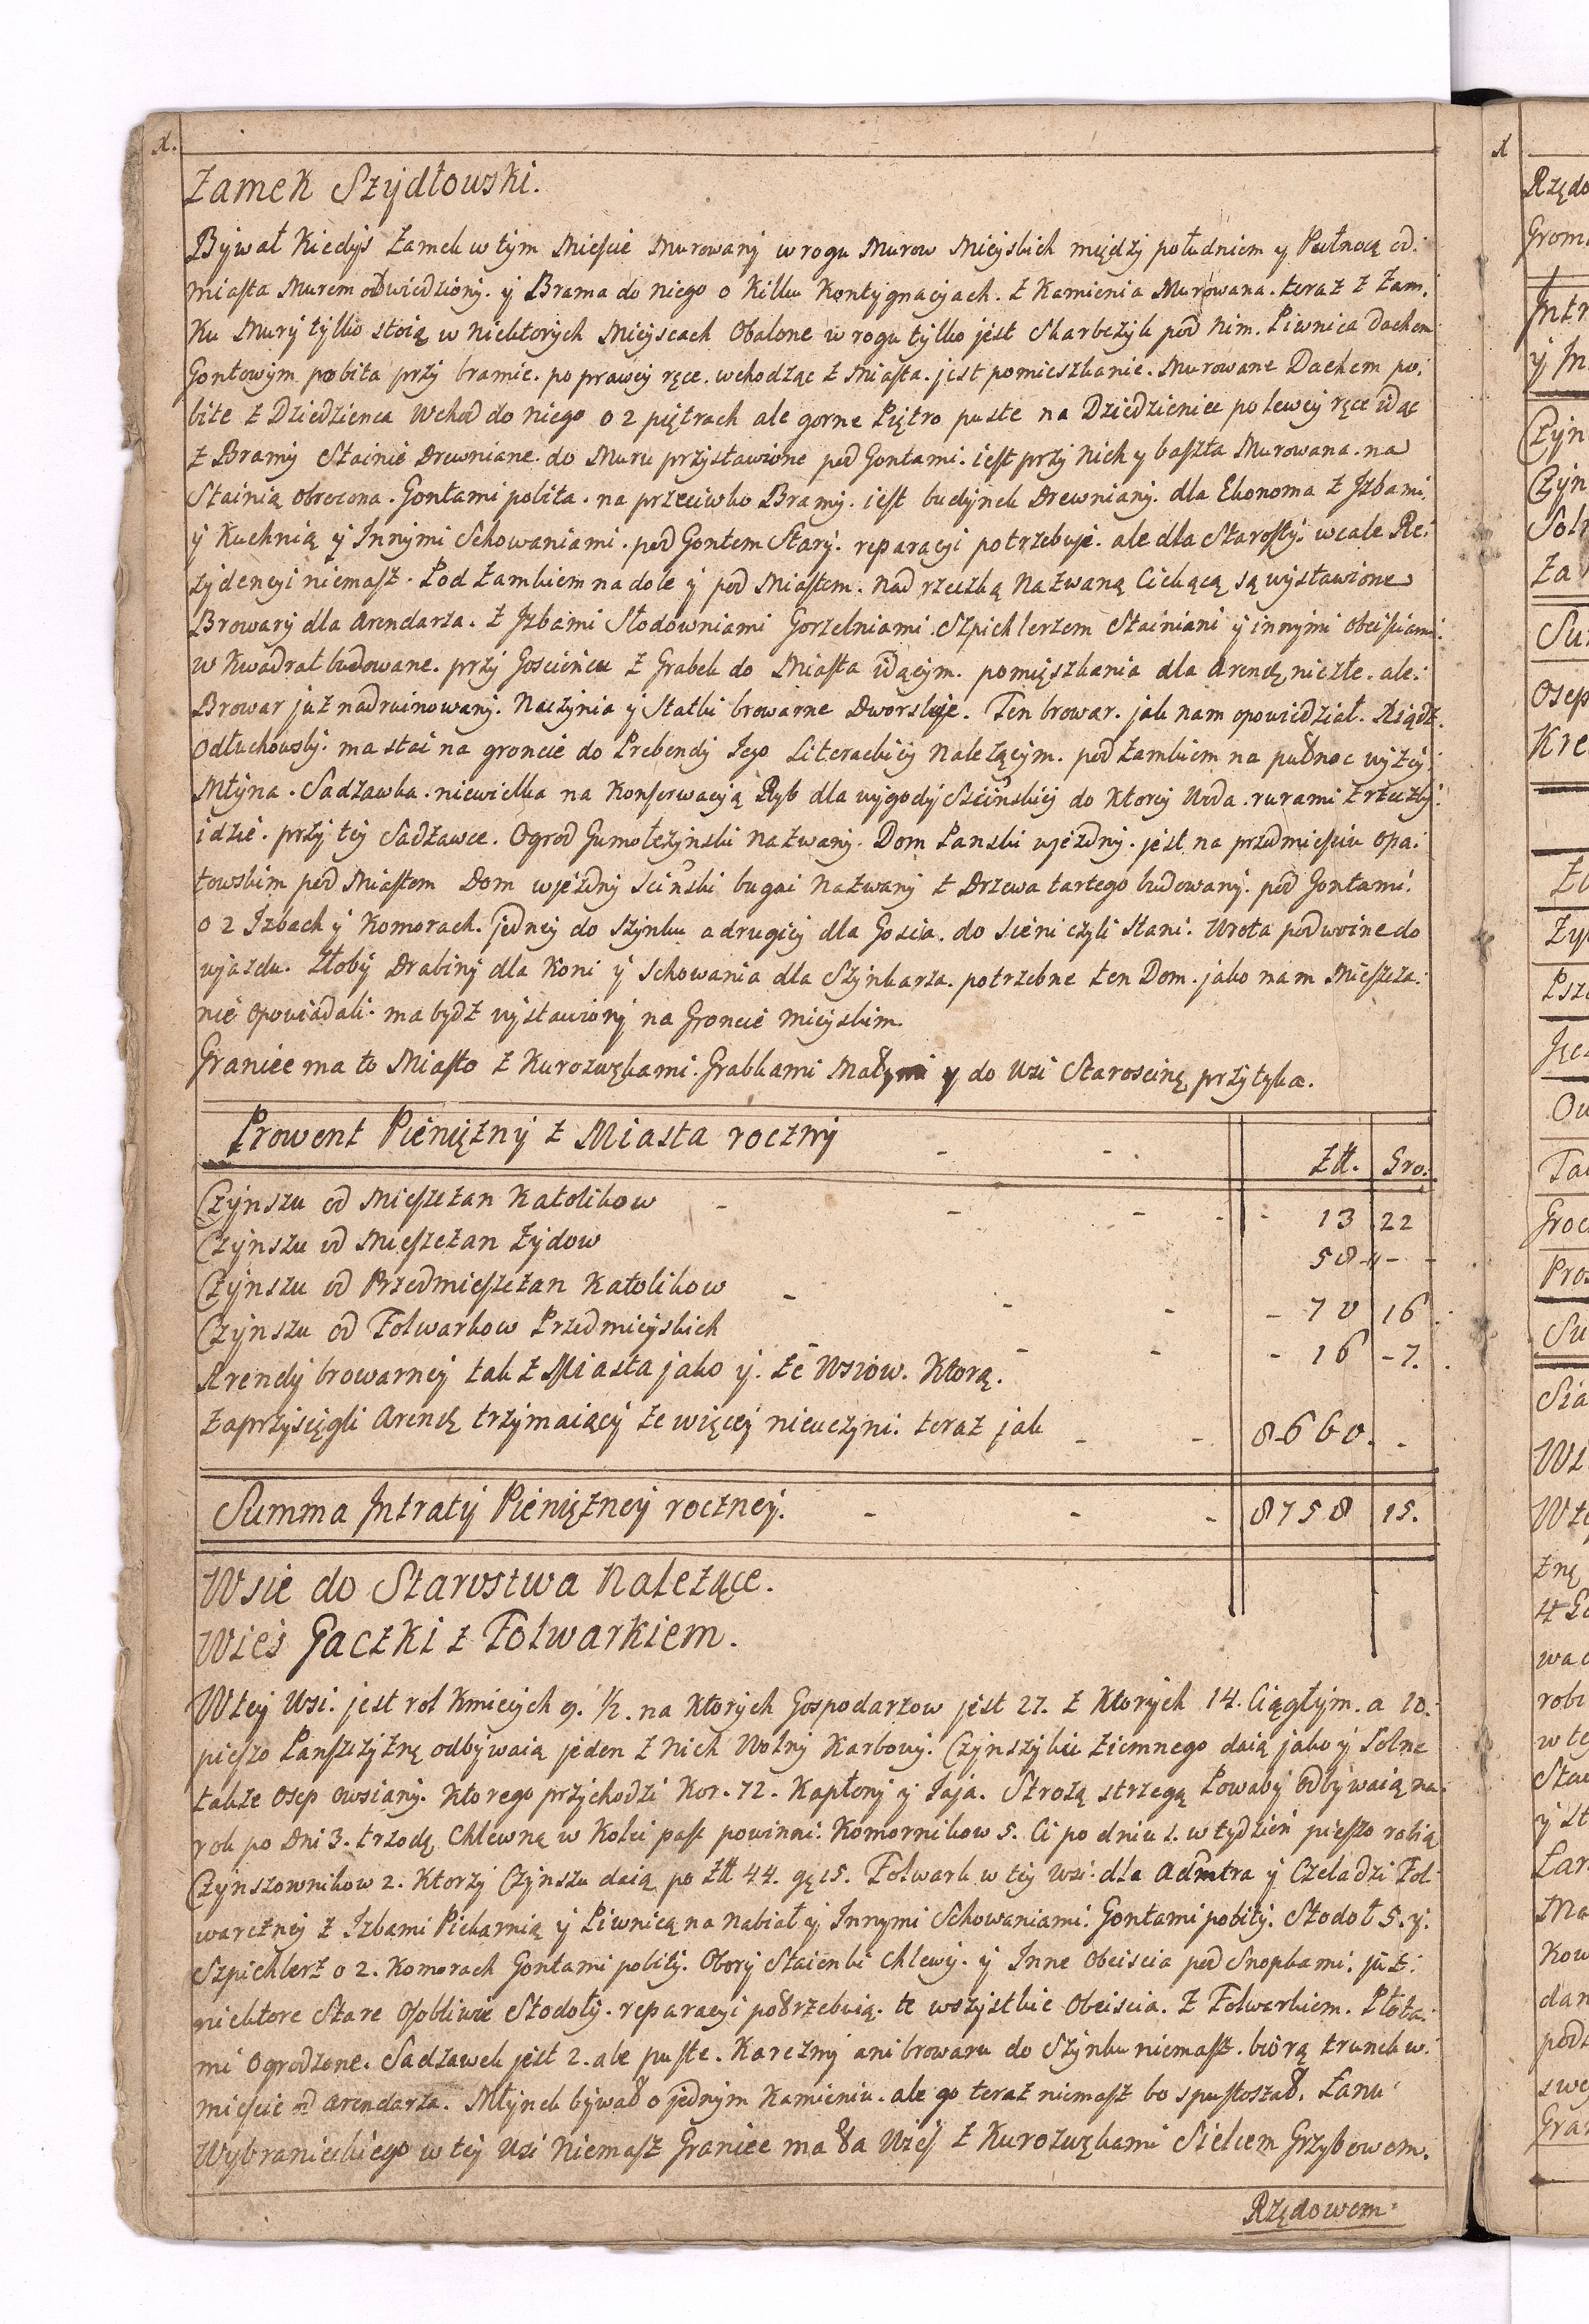 X.
Zamek Szydłowski.
Bywał Kiedys Zamek w tym Mieście Murowany w rogu Murow Mieyskich między południem y Pułnocą od
miasta Murem obwiedziony. y Brama do niego o Kilku Kontygnacyach. z Kamienia Murowana. teraz z Zam.
Ku Mury tylko stoią w niektorych Mieyscach Obalone w rogu tylko jest Skarbczyk pod nim. Piwnica Dachem
Gontowym pobita przy bramie. po prawey ręce. wchodząc z Miasta. jest pomieszkanie. Murowane Dachem po:
bite z Dziedzienca Wchod do niego o 2 piętrach ale gorne Piętro puste na Dziedziniec po lewey ręce idąc
z Bramy Stainie Drewniane. do Muru przystawione pod Gontami. iest przy nich y baszta Murowana. na
Stainią obrocona. Gontami pobita. na przeciwko Bramy. iest budynek Drewniany. dla Ekonoma z Jzbami
y Kuchnią y Innymi Schowaniami. pod Gontem Stary. reparacyi potrzebuje. ale dla Starosty: wcale Re:
zydencyi niemasz. Pod Zamkiem na dole y pod Miastem. nad rzeczką Nazwaną Ciekącą są wystawione
Browary dla Arendarza. z Jzbami Słodowniami Gorzelniami. Szpichlerzem Stainiani y innymi obeiściami:
w Kwadrat budowane. przy Gosciencu z Grabek do Miasta idącym. pomięszkania dla Arendę niezłe. ale:
Browar już nadruinowany. Naczynia y Statki browarne Dworskie. Ten browar. jak nam opowiedział. Xiądz.
Odłuchowski. ma stai na groncie do Prebendy Jego Literackiey Należącym. pod Zamkiem na pułnoc wyżey
Młyna. Sadzawka. niewielka na Konserwacyą Ryb dla wygody Scińskiey do Ktorey Woda. rurami z rzeczky
idzie. przy tey Sadzawce. Ogrod Gumolczynski nazwany. Dom Panski wjezdny. jest na przedmieściu Opa:
towskim pod Miastem Dom wjezdny Sciński bugai nazwany z Drzewa tartego budowany. pod Gontami.
o 2 Jzbach y Komorach. jedney do Szynku a drugiey dla Goscia. do Sieni czyli Stani. Wrota podwoine do
wjazdu. Złoby Drabiny dla Koni y Schowania dla Szynkarza. potrzebne ten Dom. jako nam Mieszcza:
nie opowiadali. ma bydz wystawiony na Groncie mieyskim.
Granice ma to Miasto z Kurozwękami. Grabkami Małymi y do Wsi Starościnę, przytyka.
Prowent Pieniężny z Miasta roczny - - Złt. Gro.
Czynszu od Mieszczan Katolikow - - - - 13 22
Czynszu od Mieszczan Zydow 58 -
Czynszu od Przedmieszczan Katolikow - - - - 70 16
Czynszu od Folwarkow Przedmieyskich - - - - 16 - 7.
Arendy browarney tak z Miasta jako y. ze Wsiow. Ktorą.
Zaprzysięgli Arendę trzymaiący ze więcey nieuczyni. teraz jak - - 8660. -
Summa Jntraty Pieniężney roczney. - - - 8758 15.
Wsie do Starostwa Należące.
Wies Gaczki z Folwarkiem.
W tey Wsi. jest rol Kmiecych 9. 1/2. na Ktorych Gospodarzow jest 27. z Ktorych 14. Ciągłym. a 10.
pieszo Panszzyznę odbywaią jeden z nich Wolny Karbowy. Czynszyku ziemnego daią jako y Solne
także Osep owsiany. Ktorego przychodzi Kor. 72. Kapłony y Jaja. Strozą strzegą Powaby odbywaią na
rok po Dni 3. trzodę Chlewną w Kolei paść powinni. Komornikow 5. Ci po dniu 1. w tydzień pieszo robią
Czynszownikow 2. Ktorzy Czynszu daią po Złt 44. gę 15. Folwark w tey wsi. dla Admtra y Czeladzi Fol
warczney z Jzbami Piekarnią y Piwnicą na Nabiał y Innymi Schowaniami. Gontami pobity. Stodoł 5. y.
Szpichlerz o 2. Komorach Gontami pobity. Obory Staienki Chlewy. y Inne Obeiscia pod Snopkami. już.
niektore Stare Osobliwie Stodoły. reparacyi potrzebuią. te wszystkie Obeiscia. z Folwarkiem. Płota:
mi Ogrodzone. Sadzawek jest 2. ale puste. Karczmy ani browaru do Szynku niemasz. biorą trunek w.
mieście od Arendarza. Młynek bywał o jednym Kamieniu. ale go teraz niemasz bo spustoszał. Łanu
Wybranieckiego w tey Wsi Niemasz Granice ma ta Wieś z Kurozwękami Sielcem Grzybowem.
Rzędowem.